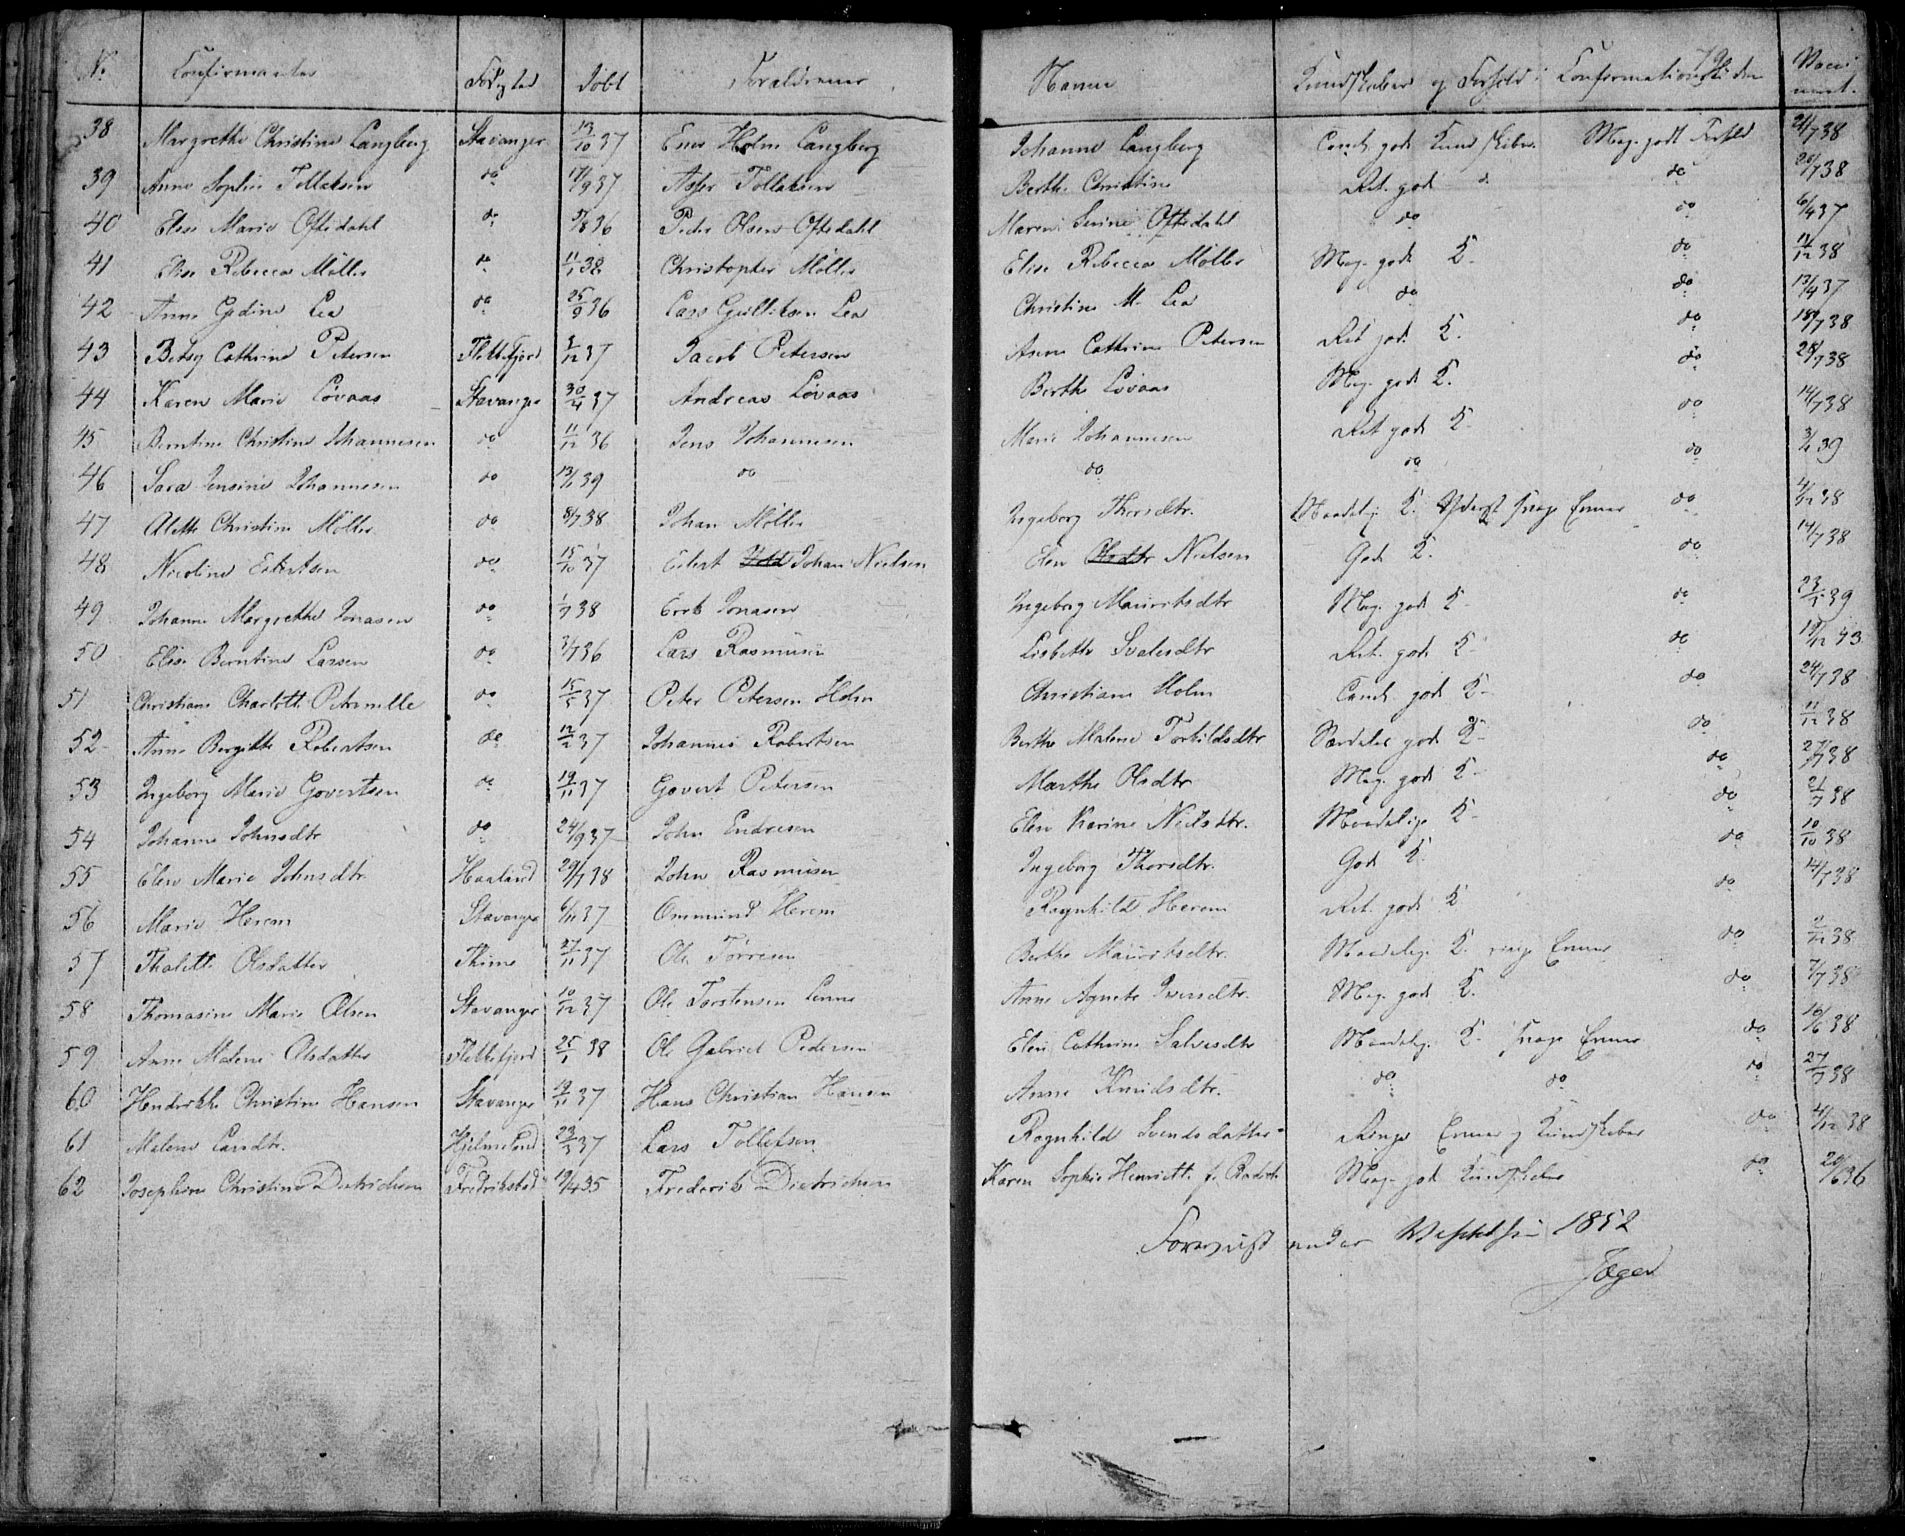 N. Confirmantes Fødested Døbt Forældrenes Navne Kundskaber og Forhold i Confirmationstiden Vacci- neret.
38 Margrethe Christine Langberg Stavanger 13/10 37 Enes Holm Langberg Johanne Langberg god Kundskaber Meg. godt Forhold 21/7 38
39 Anne Sophie Tollaksen do 17/9 37 Asser Tollaksen Berthe Christine Ret god do do 20/7 38
40 Elise Marie Oftedahl do 5/8 36 Peder Olsen Oftedahl Maren Serine Oftedahl do do 6/4 37
41 Elise Rebecca Møller do 11/1 38 Christopher Møller Elise Rebecca Møller Meg. gode K. do 11/12 38
42 Anne Gedine Lea do 25/9 36 Lars Gulliksen Lea Christine M. Lea do do 13/4 37
43 Betsy Cathrine Petersen Flekkefjord 3/12 37 Jacob Petersen Anne Cathrine Petersen Ret gode K. do 18/7 38
44 Karen Marie Løvaas Stavanger 30/4 37 Andreas Løvaas Berthe Løvaas Meg. gode K. do 28/7 38
45 Berntine Christine Johannesen do 11/12 36 Jens Johannesen Marie Johannesen Ret gode K. do 14/7 38
46 Sara Jensine Johannesen do 13/1 39 do do do do 3/6 39
47 Alette Christine Møller do 8/7 38 Johan Møller Ingeborg Thorsdtr. Maadelig K. Yderst svage Evner do 4/12 38
48 Nicoline Eilertsen do 15/10 37 Eilert Johan Nielsen Elen Olsdtr Nielsen Gode K. do 14/7 38
49 Johanne Margrethe Jonasen do 1/7 38 Erik Jonasen Ingeborg Mauritsdtr Meg. gode K. do 23/1 39
50 Elise Berntine Larsen do 3/7 36 Lars Rasmusen Lisbeth Svalesdtr Ret. gode K. do 19/12 43
51 Christiane Charlotte Petronille do 15/5 37 Peter Petersen Holm Christiane Holm gode K. do 24/7 38
52 Anne Bergitte Robertsen do 12/2 37 Johannes Robertsen Berthe Malene Torkildsdtr Særdeles gode K. do 11/12 38
53 Ingeborg Marie Govertsen do 19/11 37 Govert Petersen Marthe Olsdtr Meg. gode K. do 27/7 38
54 Johanne Johnsdtr do 24/9 37 John Endresen Elen Karine Nielsdtr. Maadelige K. do 21/7 38
55 Elen Marie Johnsdtr Haaland 29/7 38 John Rasmusen Ingeborg Thorsdtr. Gode K. do 10/10 38
56 Marie Herem Stavanger 6/11 37 Ommund Herem Ragnhild Herem Ret. gode K do 14/7 38
57 Thalette Olsdatter Thime 27/11 37 Ole Tørresen Berthe Mauritsdtr. Maadelige K. ringe Evner do 2/12 38
58 Thomasine Marie Olsen Stavanger 10/12 37 Ole Torstensen Lenne Anne Agnete Iversdtr. Meg. gode K. do 7/7 38
59 Anne Malene Olsdatter Flekkefjord 25/1 38 Ole Gabriel Pedersen Elen Cathrine Salvesdtr Maadelig K. svage Evner do 16/6 38
60 Hendrikke Christine Hansen Stavanger 19/11 37 Hans Christian Hansen Anne Knudsdtr. do do do 27/7 38
61 Malene Larsdtr. Hjelmeland 23/3 37 Lars Tollefsen Ragnhild Svendsdatter Ringe Evner og Kundskaber do 4/12 38
62 Josephine Christine Dietrichsen Fredrikstad 19/4 35 Frederik Dietrichsen Karen Sophie Henriette f. Meg. gode Kundskaber do 20/6 36
Forevist under 1852
Jæger